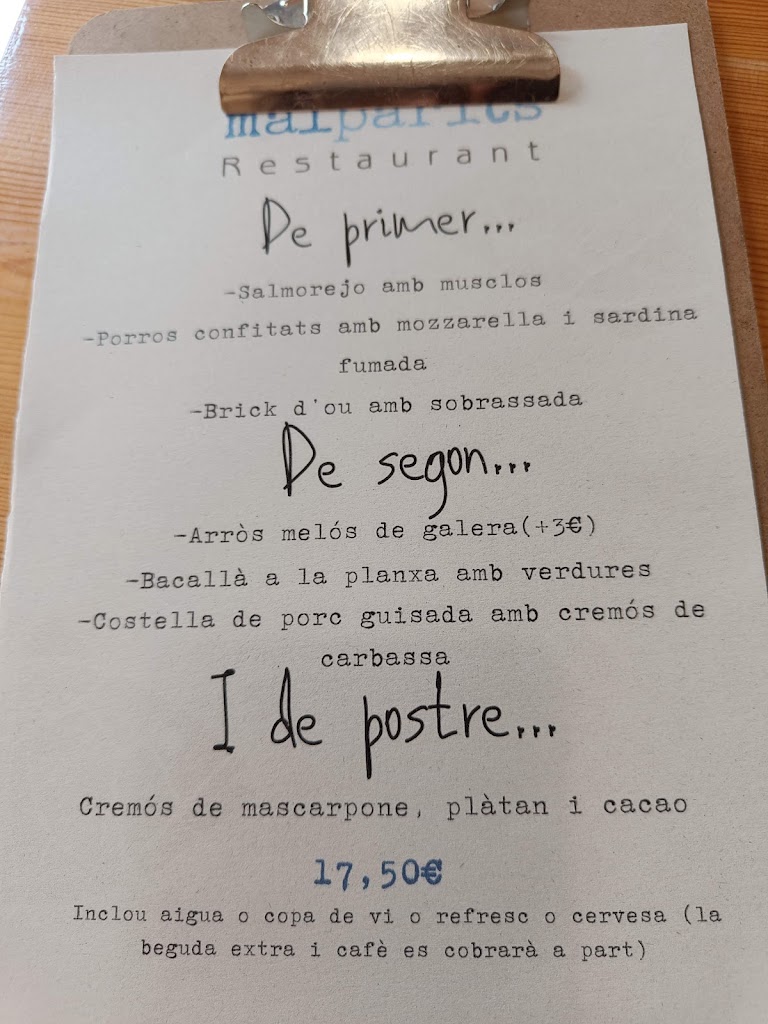 malparits
Restaurant
De primer...
-Salmorejo amb musclos
-Porros confitats amb mozzarella i sardina
fumada
-Brick d'ou amb sobrassada
De segon...
-Arròs melós de galera(+3€)
-Bacallà a la planxa amb verdures
-Costella de porc guisada amb cremós de
carbassa
I de postre...
Cremós de mascarpone, plàtan i cacao
17,50€
Inclou aigua o copa de vi o refresc o cervesa (la
beguda extra i cafè es cobrarà a part)